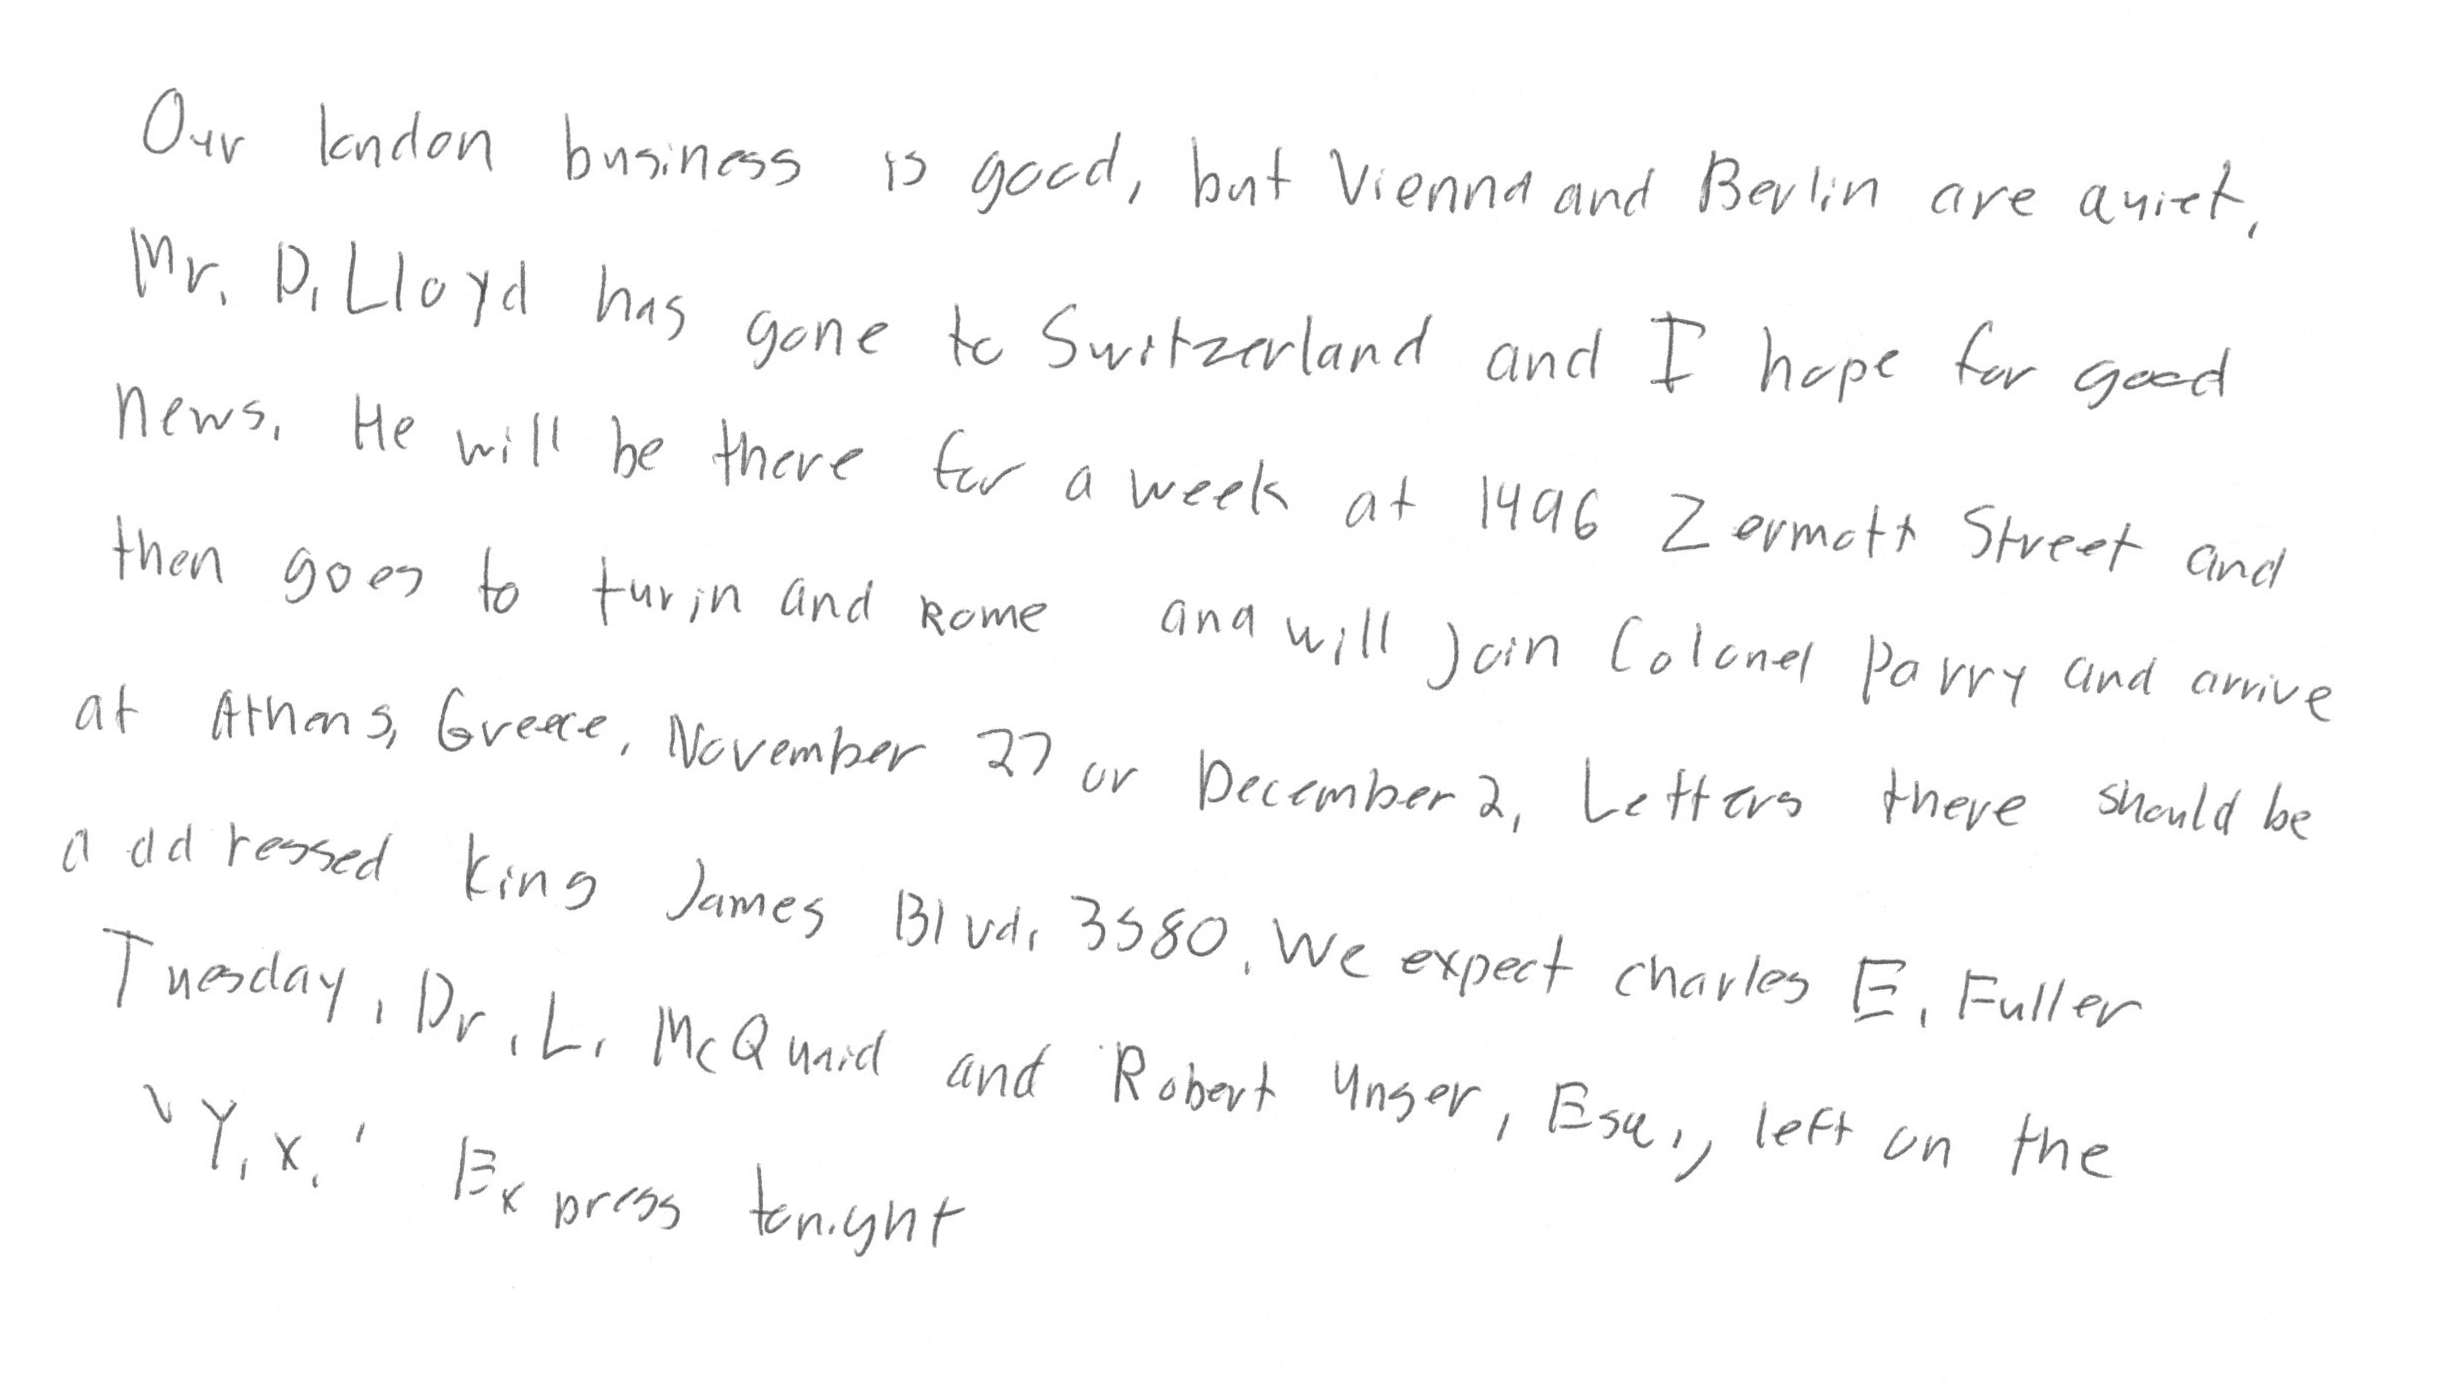 Our london business is good, but Vienna and Berlin are quiet.
Mr. D. Lloyd has gone to Switzerland and I hope for good
news. He will be there for a week at 1496 Zermott Street and
then goes to turin and Rome and will join Colonel Parry and arrive
at Athens, Greece, November 27 or December 2. Letters there should be
addressed King James Blvd. 3580. We expect Charles E. Fuller
Tuesday. Dr. L. McQuaid and Robert Unger, Esq., left on the
'Y.X.' Express tonight